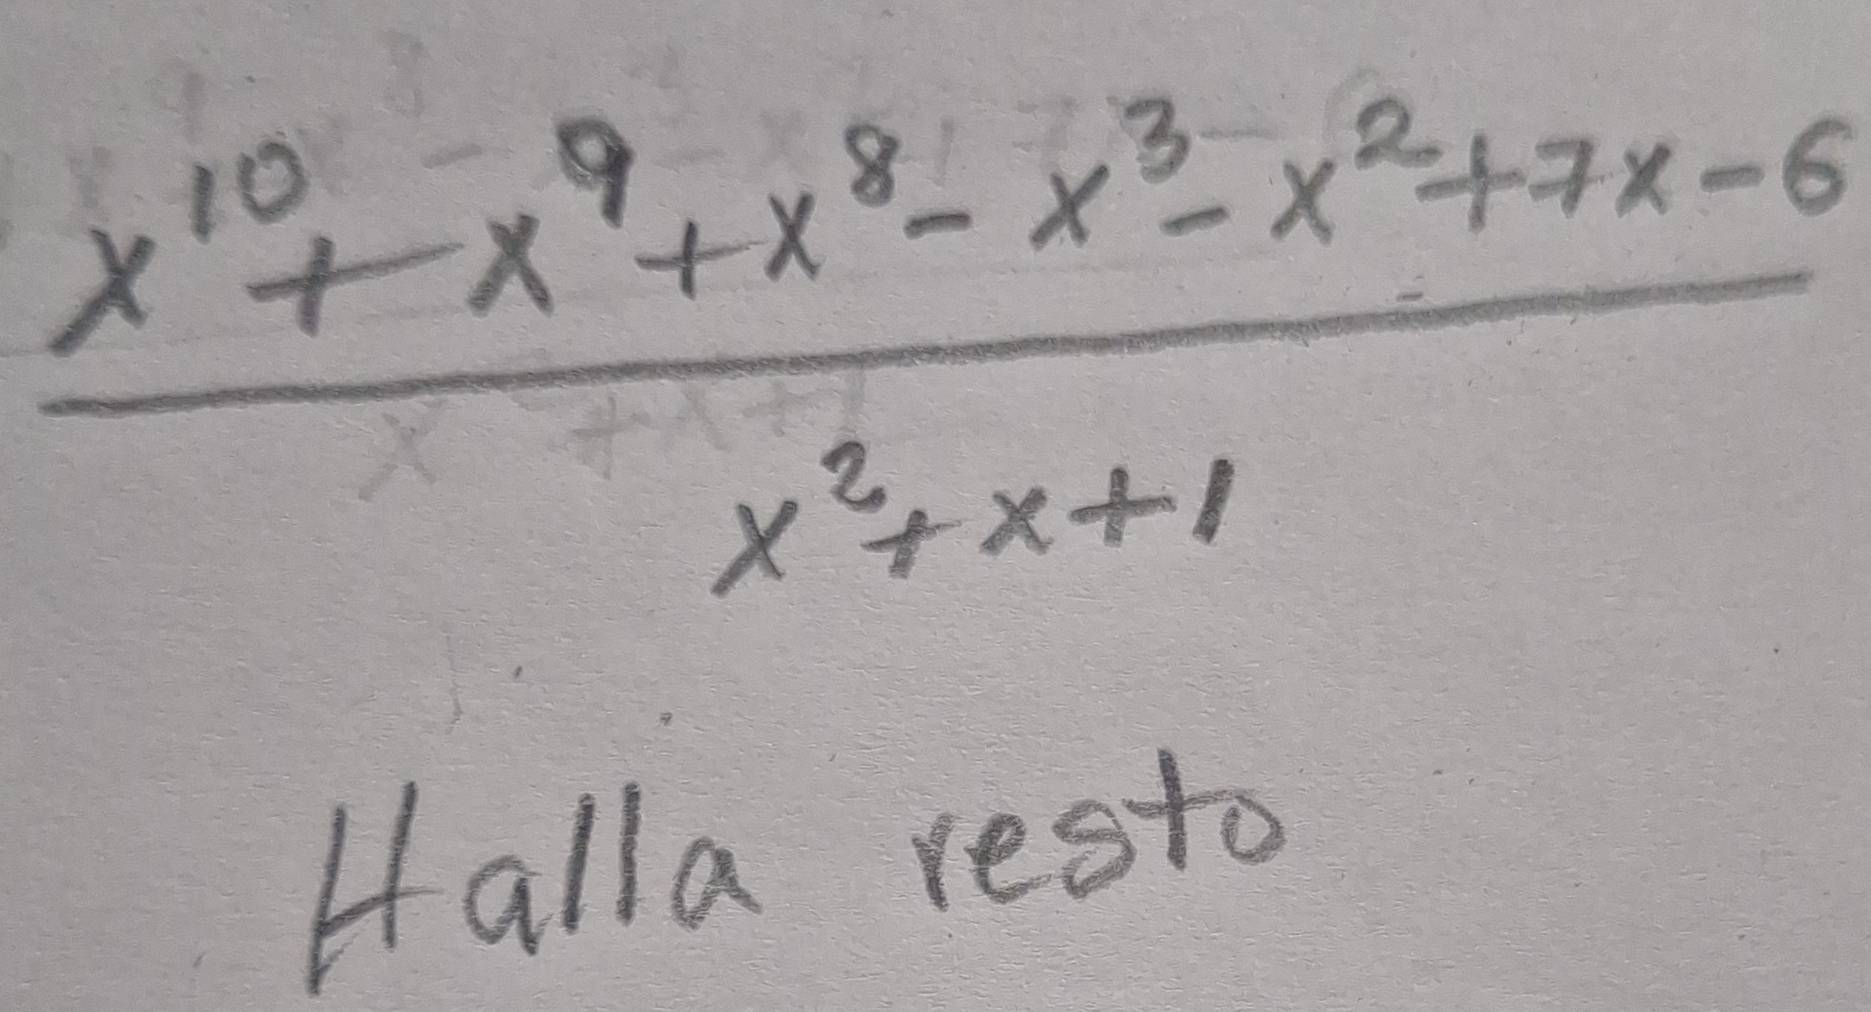 x¹⁰ + x⁹ + x⁸ - x³ - x² + 7x - 6
x² + x + 1
Halla resto